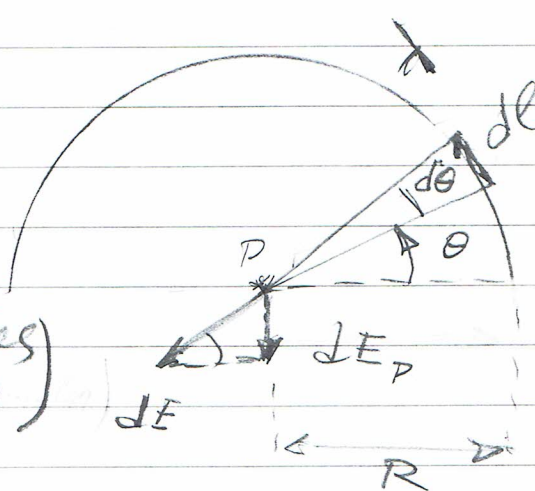 λ
dl
dθ
θ
P
es)
dE
dE_P
R